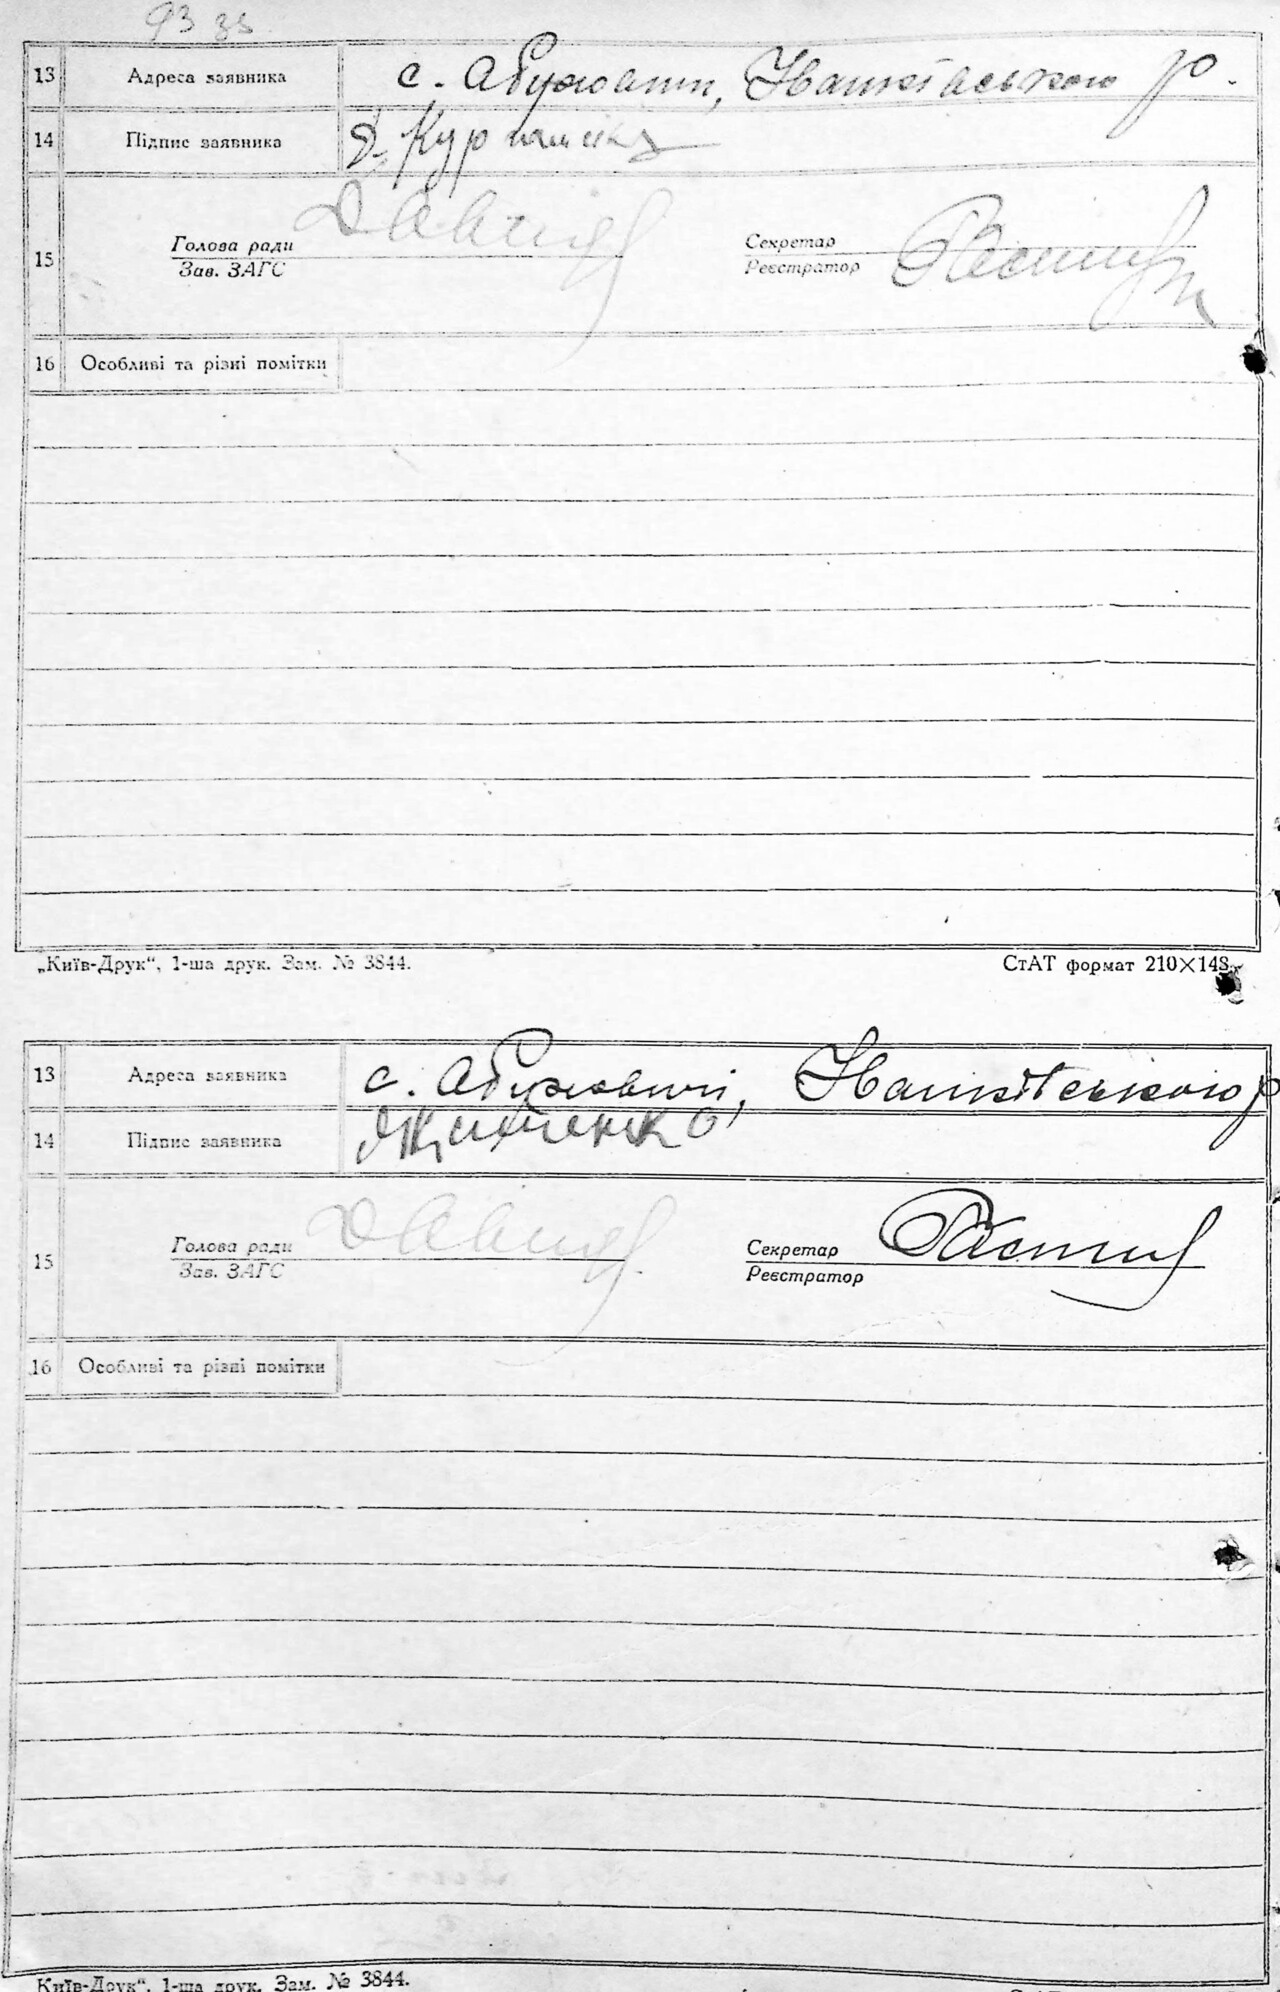 93 зв
13 Адреса заявника с. Абужовати, Іванківського р.
14 Підпис заявника
15 Голова ради Секретар
Зав. ЗАГС Реєстратор
16 Особливі та різні помітки
„Київ-Друк“, 1-ша друк. Зам. № 3844. СтАТ формат 210×148
13 Адреса заявника с. Іванківського р
14 Підпис заявника
15 Голова ради Секретар
Зав. ЗАГС Реєстратор
16 Особливі та різні помітки
Київ-Друк“, 1-ша друк. Зам. № 3844.